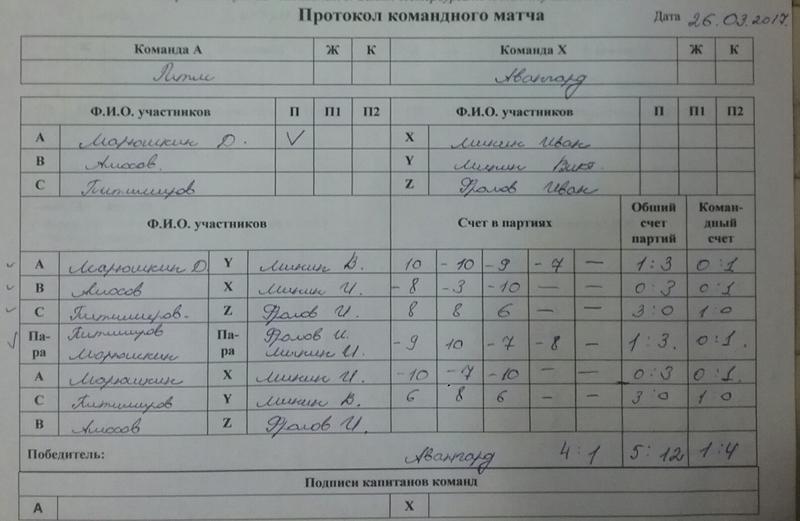 Протокол командного матча
Дата 26.03.2017.
Команда А Ж К Команда Х Ж К
Питм Авангард
Ф.И.О. участников П П1 П2 Ф.И.О. участников П П1 П2
А Марюшкин Д. V Х Минин Иван
В Амосов. Y Минин Викт.
С Питимиров Z Фролов Иван
Ф.И.О. участников Счет в партиях Общий счет партий Коман-дный счет
А Марюшкин Д. Y Минин В. 10 -10 -9 -7 — 1:3 0:1
В Амосов Х Минин И. -8 -3 -10 — — 0:3 0:1
С Питимиров. Z Фролов И. 8 8 6 — — 3:0 1:0
Па-ра Питимиров Марюшкин Па-ра Фролов И. Минин И. -9 10 -7 -8 — 1:3. 0:1.
А Марюшкин Х Минин И. -10 -7 -10 — — 0:3 0:1.
С Питимиров Y Минин В. 6 8 6 — — 3:0 1:0
В Амосов Z Фролов И.
Победитель: Авангард 4:1 5:12 1:4
Подписи капитанов команд
А Х